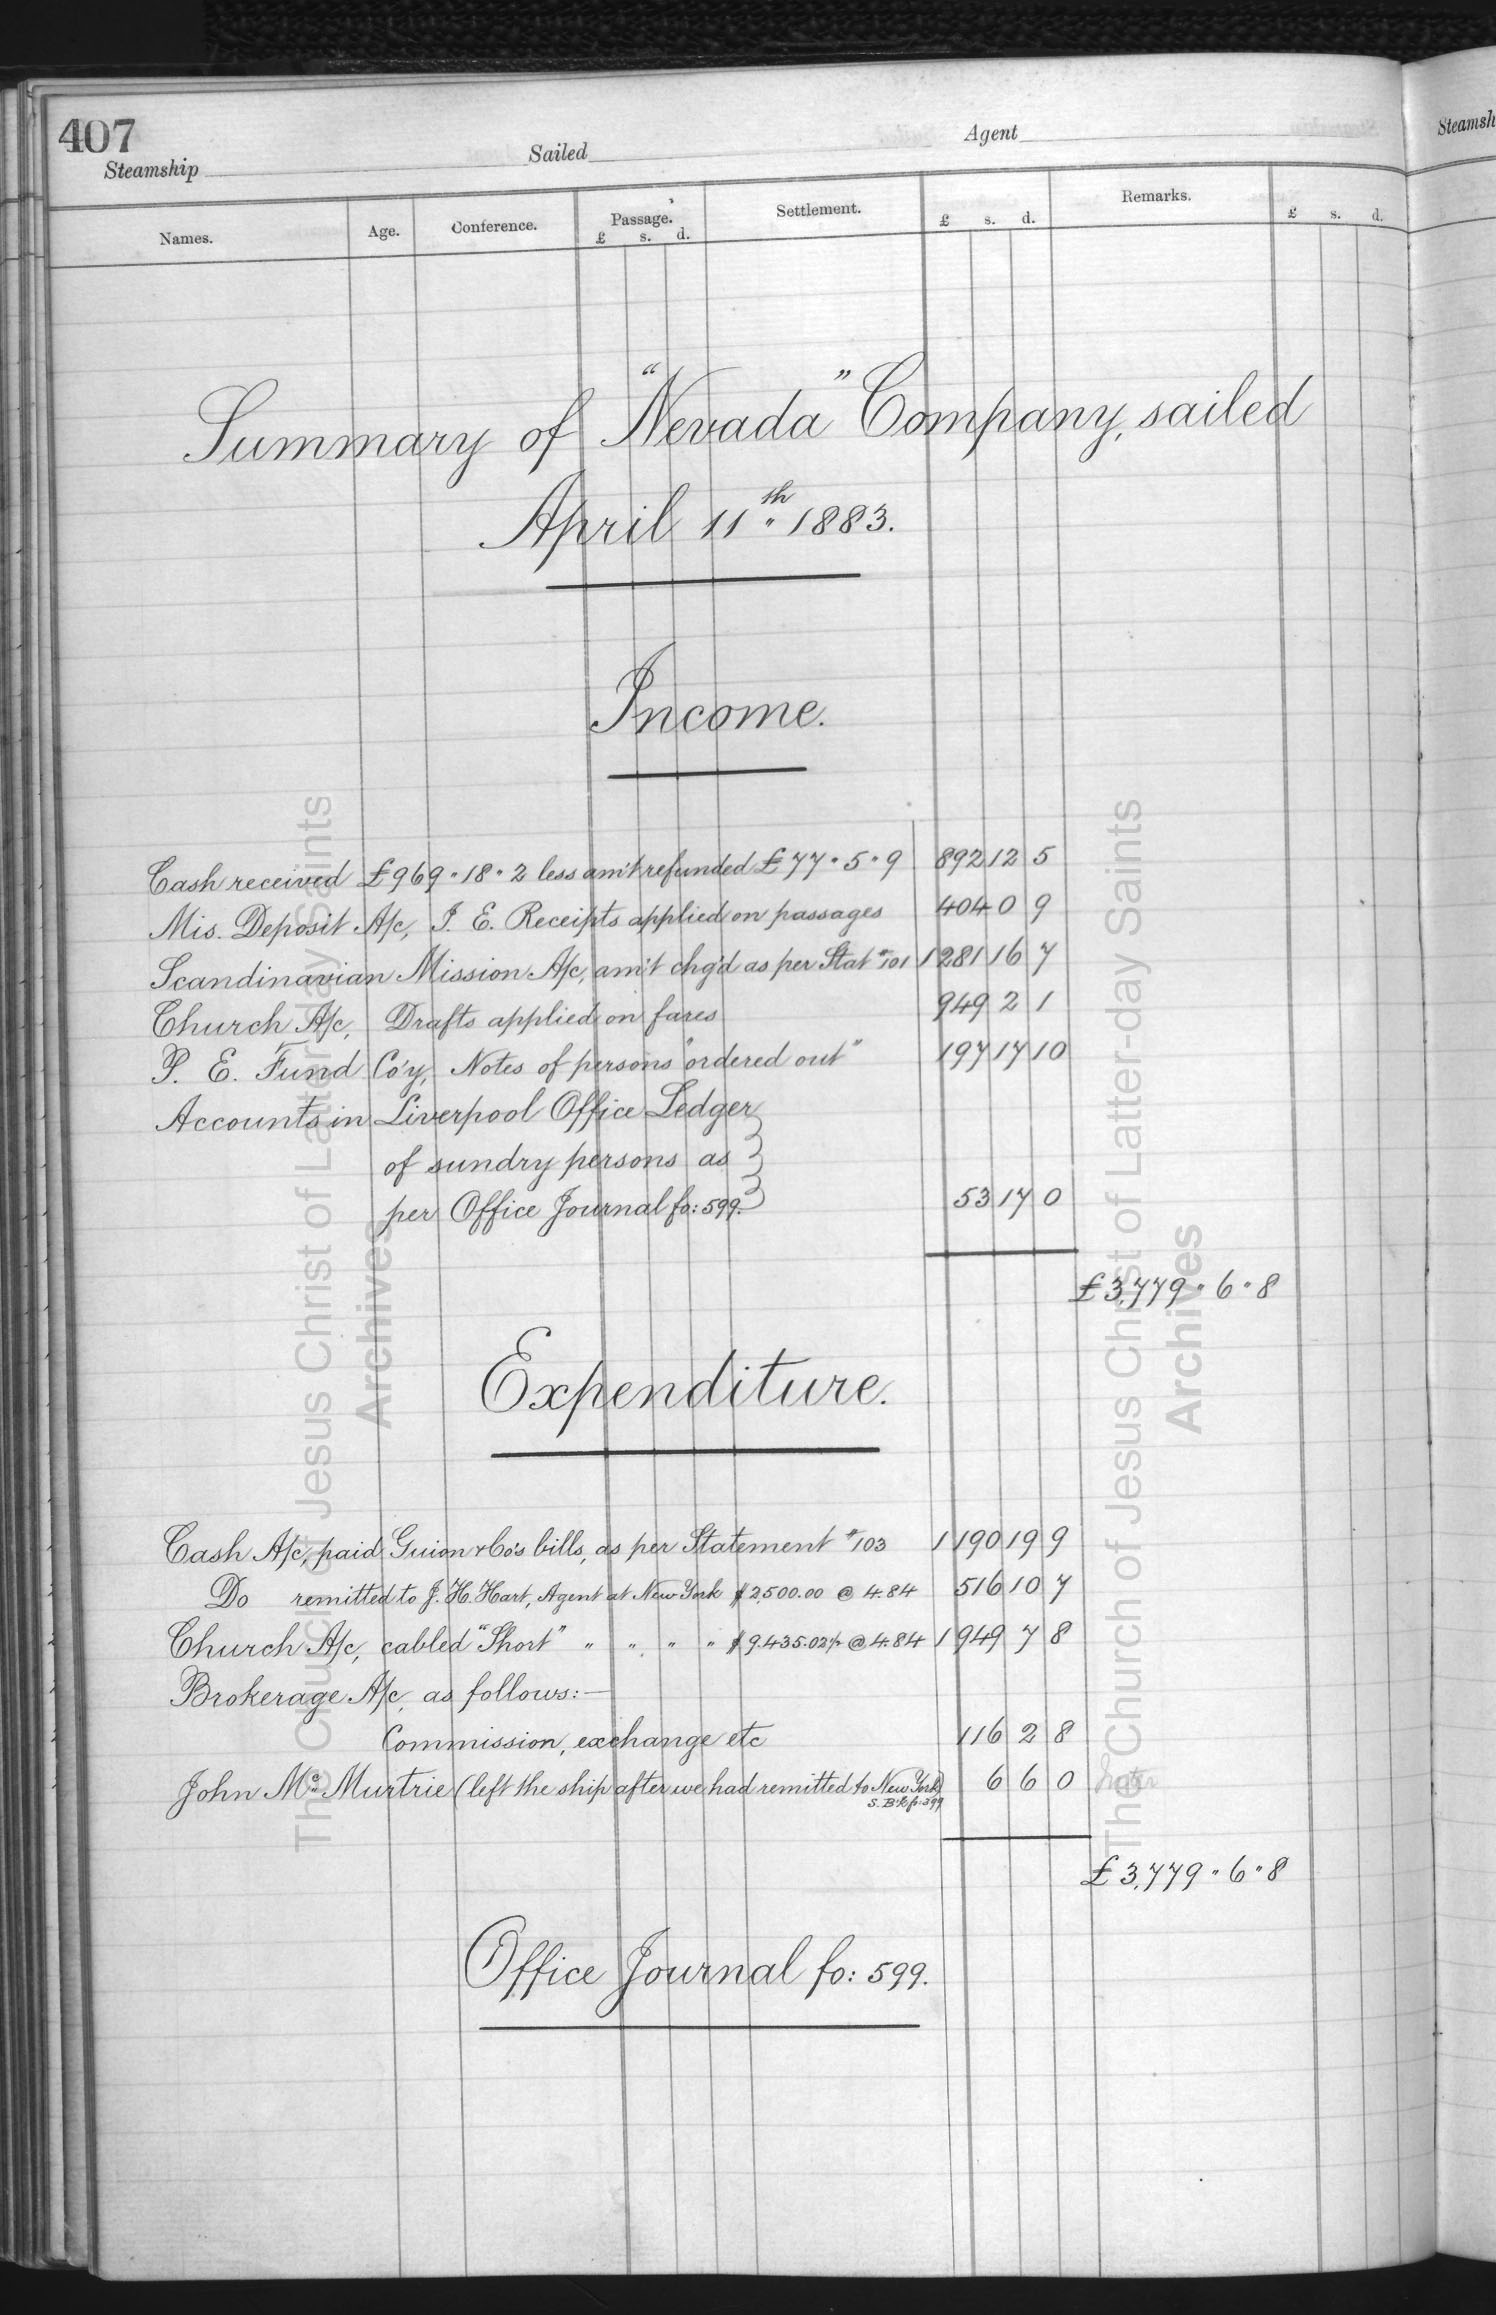 407
Steamship Sailed Agent
Steamsh
Names. Age. Conference. Passage. £ s. d. Settlement. £ s. d. Remarks. £ s. d.
Summary of "Nevada" Company, sailed
April 11th 1883.
Income.
Cash received £969 " 18 " 2 less am't refunded £77 " 5 " 9 892 12 5
Mis. Deposit A/c, I. E. Receipts applied on passages 404 0 9
Scandinavian Mission A/c, am't chg'd as per Stat #101 1281 16 7
Church A/c, Drafts applied on fares 949 2 1
P. E. Fund Co'y, Notes of persons "ordered out" 197 17 10
Accounts in Liverpool Office Ledger
of sundry persons as
per Office Journal fo: 599. 53 17 0
£3,779 " 6 " 8
Expenditure.
Cash A/c, paid Guion & Co's bills, as per Statement #103 1190 19 9
Do remitted to J. H. Hart, Agent at New York $2,500.00 @ 4.84 516 10 7
Church A/c, cabled "Short" " " " " $9.435.02½ @ 4.84 1949 7 8
Brokerage A/c, as follows:—
Commission, exchange etc 116 2 8
John Mc Murtrie (left the ship after we had remitted to New York) 6 6 0
S. B'k fo: 399
£3,779 " 6 " 8
Office Journal fo: 599.
The Church of Jesus Christ of Latter-day Saints
Archives
The Church of Jesus Christ of Latter-day Saints
Archives